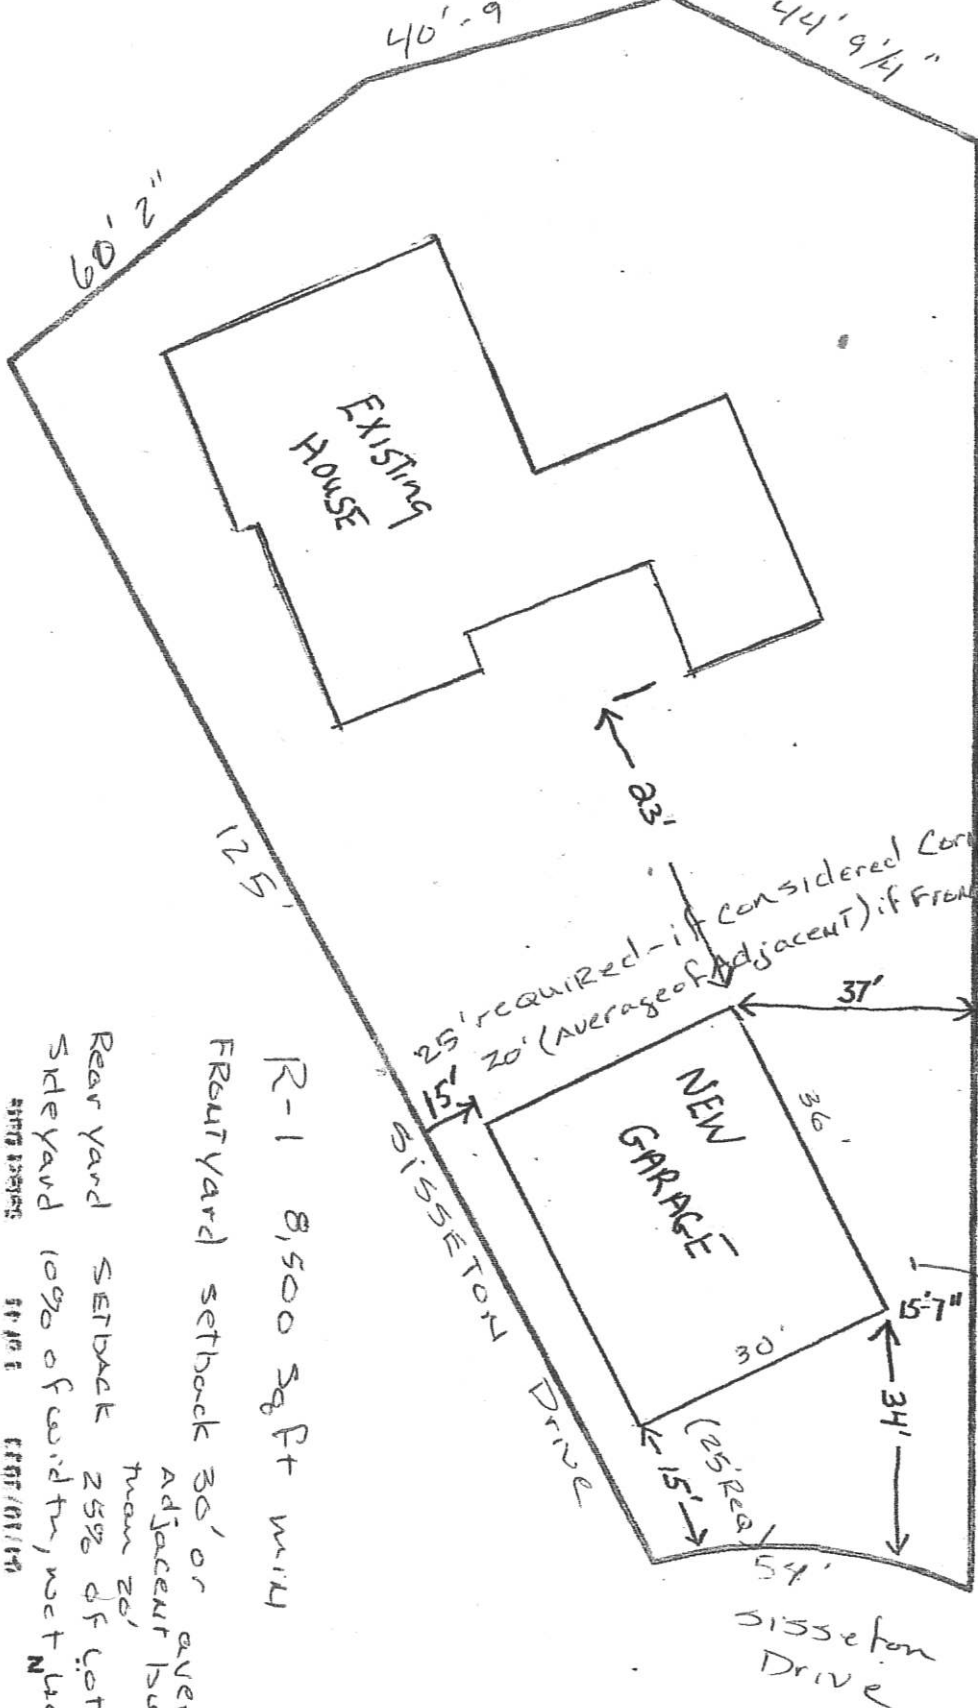 40'-9
44' 9 1/4"
60' 2"
EXISTING
HOUSE
23'
125'
25' required - if considered Cor
20' (Average of Adjacent) if From
37'
15'
NEW
GARAGE
36'
30'
15'-7"
34'
(25' Req)
15'
54'
SISSETON Drive
Sisseton
Drive
R-1 8,500 sq ft min
FRONT yard setback 30' or aver
Adjacent bu
than 20'
Rear yard SETBACK 25% of Lot
Sideyard 10% of width, not
N